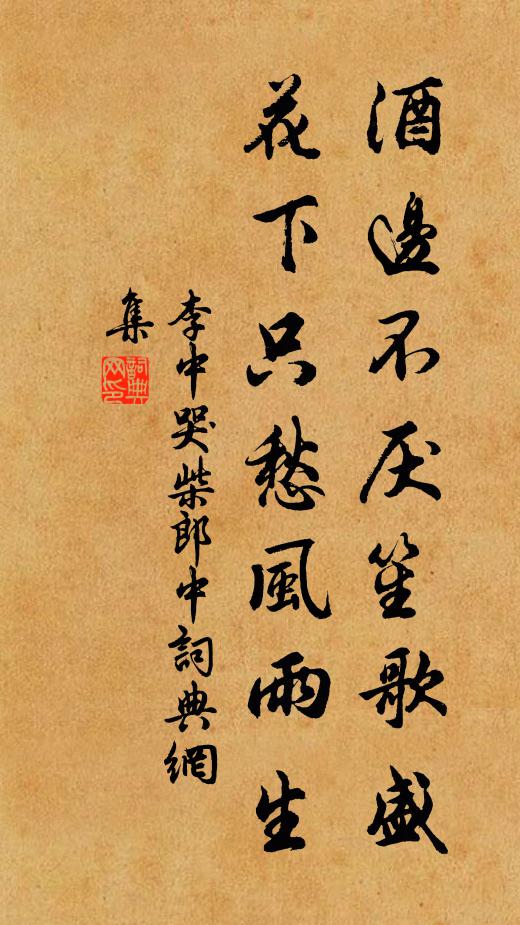 酒邊不厌笙歌盛
花下只愁風雨生
李中哭柴郎中詞典網
集
詞典
网印